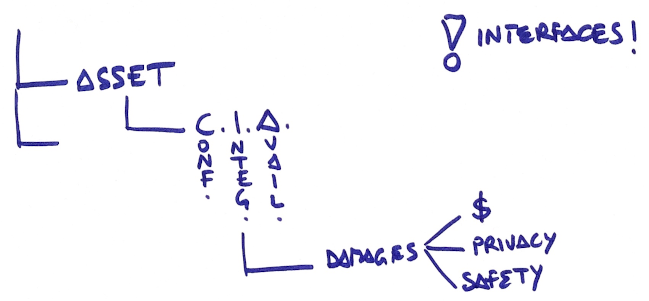 ! INTERFACES!
ASSET
C.I.A.
CONF.
INTEG.
AVAIL.
$
DAMAGES
PRIVACY
SAFETY